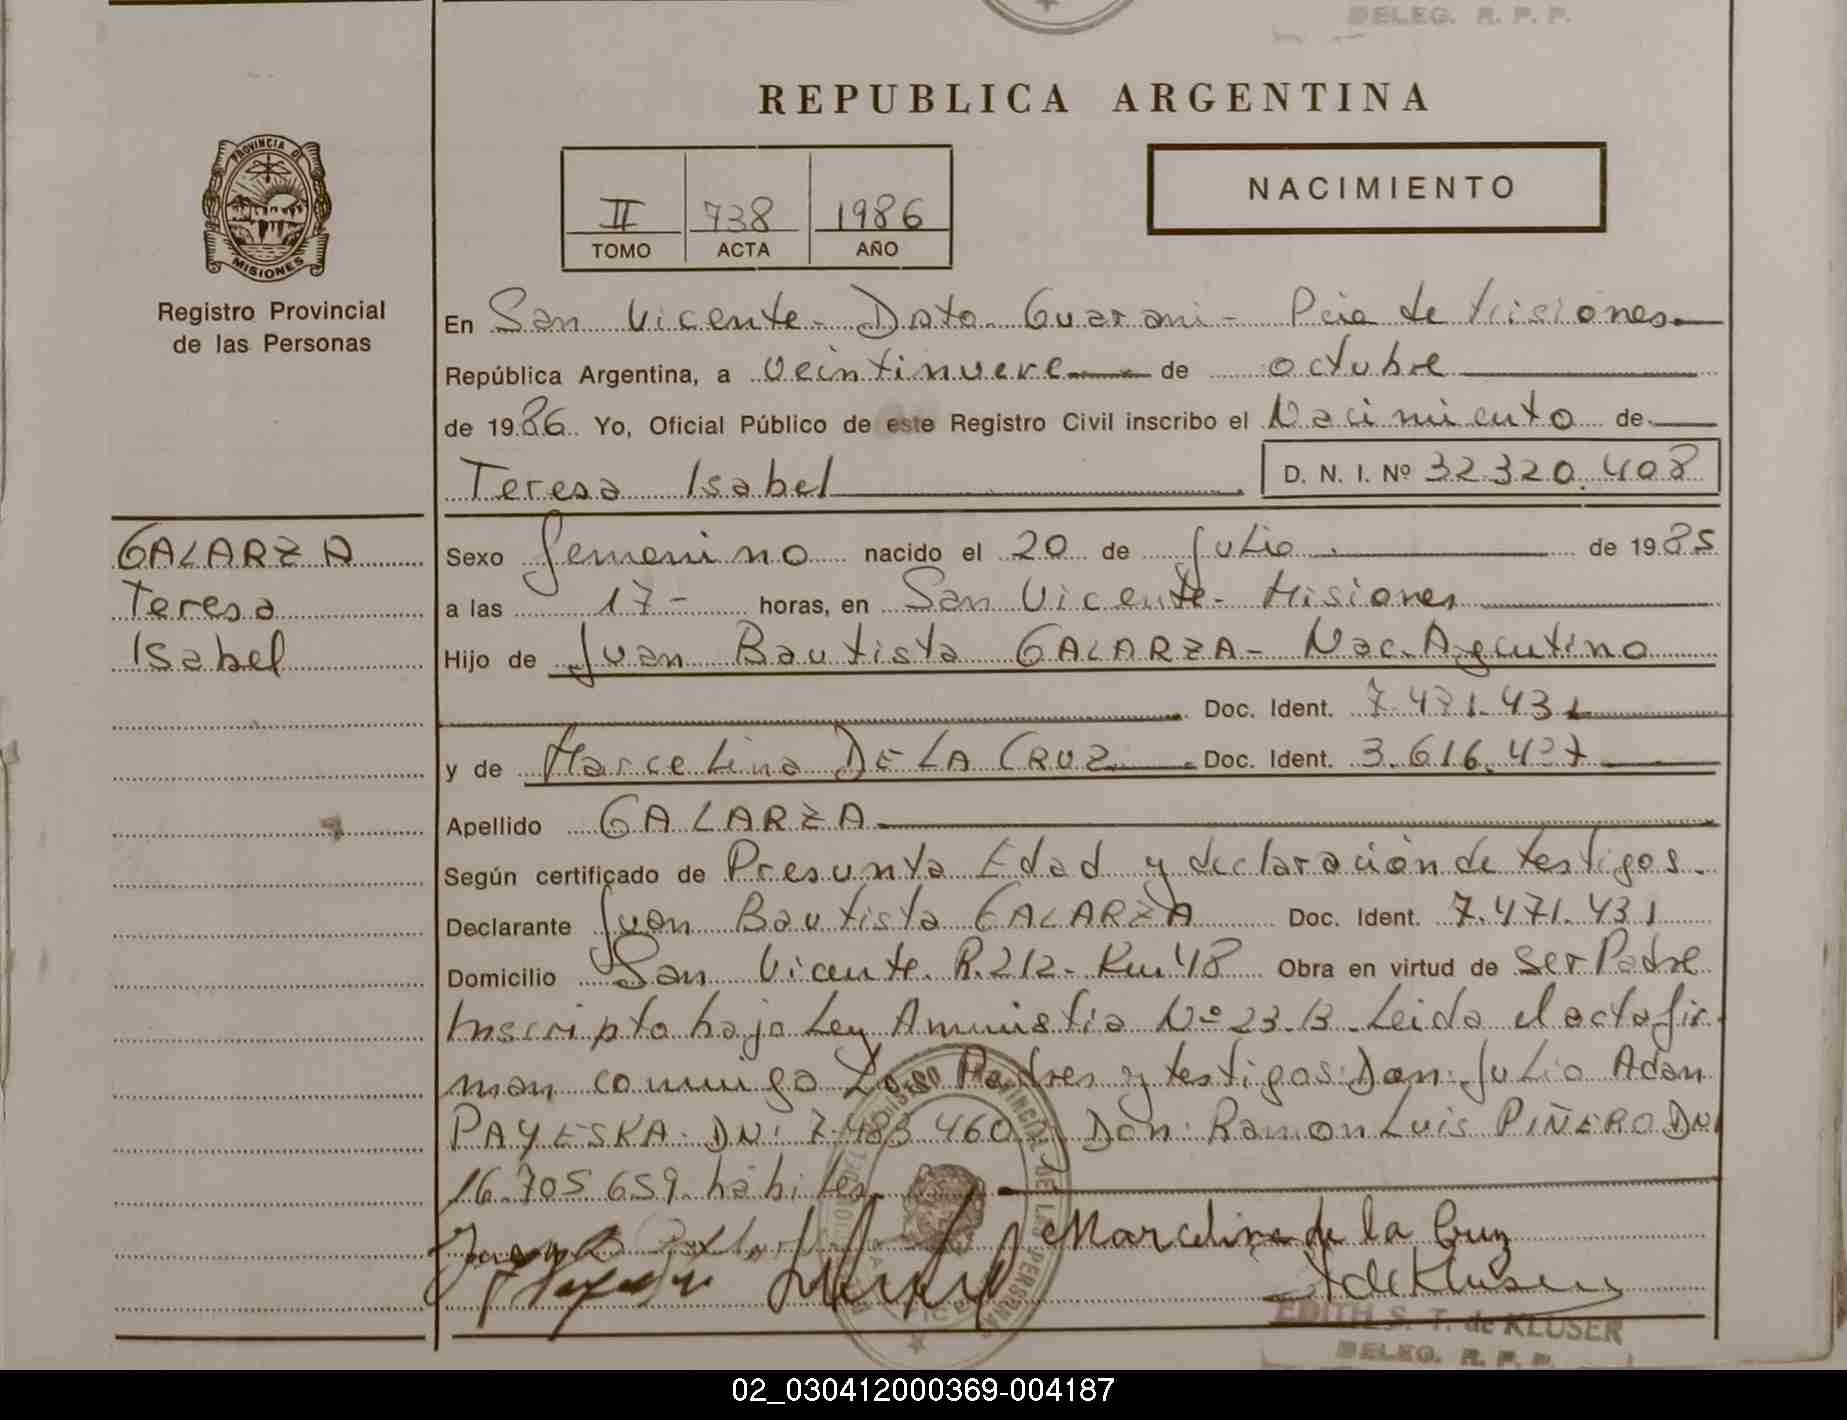 DELEG. R. P. P.
REPUBLICA ARGENTINA
PROVINCIA D
MISIONES
Registro Provincial
de las Personas
II 738 1986
TOMO ACTA AÑO
NACIMIENTO
En San Vicente - Dpto. Guarani - Pcia de Misiones
República Argentina, a Veintinueve de octubre
de 1986 Yo, Oficial Público de este Registro Civil inscribo el Nacimiento de
Teresa Isabel D. N. I. Nº 32.320.408
GALARZA
Teresa
Isabel
Sexo femenino nacido el 20 de Julio de 1985
a las 17- horas, en San Vicente - Misiones
Hijo de Juan Bautista GALARZA - Nac. Argentino
Doc. Ident. 7.471.431
y de Marcelina DE LA CRUZ Doc. Ident. 3.616.427
Apellido GALARZA
Según certificado de Presunta Edad y declaración de testigos.
Declarante Juan Bautista GALARZA Doc. Ident. 7.471.431
Domicilio San Vicente. R.212- Km 48 Obra en virtud de ser Padre
Inscripto bajo Ley Amnistia Nº 23.13. Leida el acta fir-
man conmigo Los Padres y testigos: Don: Julio Adan
PAYESKA. DNI 7.483.460 y Don: Ramon Luis PIÑERO DNI
16.705.659. hábiles.
Marcelina de la Cruz
de Kluser
EDITH S. T. de KLUSER
DELEG. R. P. P.
02_030412000369-004187